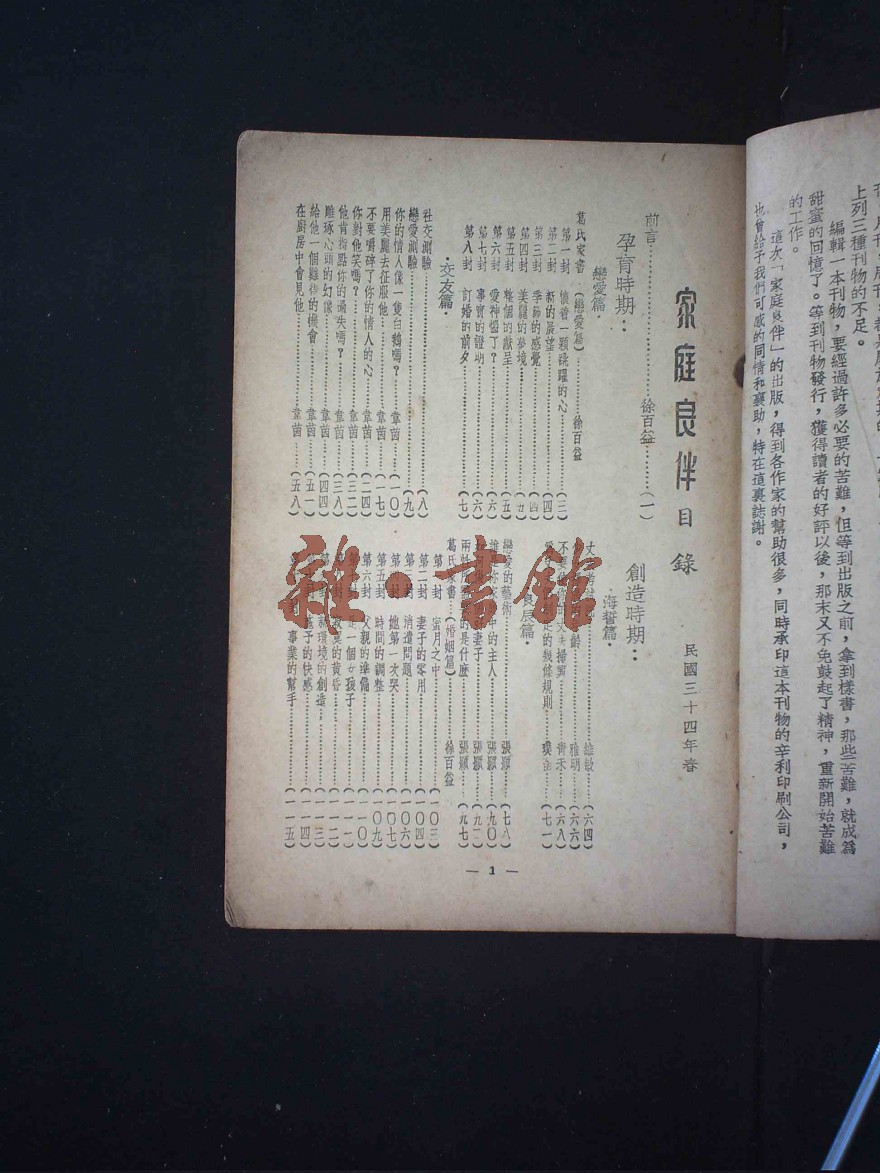 上列三種刊物的不足。
編輯一本刊物，要經過許多必要的苦難，但等到出版之前，拿到樣書，那些苦難，就成爲
甜蜜的回憶了。等到刊物發行，獲得讀者的好評以後，那末又不免鼓起了精神，重新開始苦難
的工作。
這次「家庭良伴」的出版，得到各作家的幫助很多，同時承印這本刊物的辛利印刷公司，
也曾給予我們可感的同情和襄助，特在這裏誌謝。
家庭良伴目錄 民國三十四年春
前言……徐百益……(一)
孕育時期：
戀愛篇·
葛氏家書（戀愛篇）……徐百益
第一封 懷着一顆跳躍的心……(三)
第二封 新的展望……(四)
第三封 季節的感覺……(四)
第四封 美麗的夢境……(五)
第五封 整個的獻呈……(五)
第六封 愛神惱了？……(六)
第七封 事實的證明……(六)
第八封 訂婚的前夕……(七)
·交友篇·
社交測驗……(八)
戀愛測驗……(九)
你的情人像一隻白鵝嗎？……韋茵……(一〇)
用美麗去征服他……韋茵……(一七)
不要嚼碎了你的情人的心……韋茵……(二四)
你對他笑嗎？……韋茵……(三二)
他肯指點你的過失嗎？……韋茵……(三八)
雕琢心頭的幻像……韋茵……(四四)
給他一個難得的機會……韋茵……(五一)
在厨房中會見他……韋茵……(五八)
創造時期：
·海誓篇·
維敏……(六四)
雅明……(六六)
(六八)
的幾條規則……(七一)
良辰篇·
戀愛的藝術……張纈……(七八)
中的主人……張纈……(九〇)
妻子……張纈……(九二)
的是什麼……張纈……(九七)
葛氏家書……（婚姻篇）……徐百益
第一封 蜜月之中……(一〇三)
第二封 妻子的零用……(一〇四)
消遣問題……(一〇六)
第四封 她第一次哭……(一〇七)
第五封 時間的調整……(一〇九)
第六封 父親的準備……(一一〇)
一個女孩子……(一一一)
寂寞的黃昏……(一一二)
新環境的創造……(一一三)
孩子的快感……(一一四)
事業的幫手……(一一五)
— 1 —
雜·書館